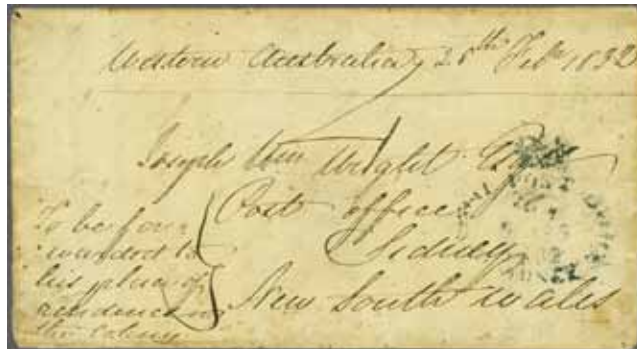 Western Australia, 25th Feb 1832
Joseph Wm Wright Esqr
Post office
Sidney
New South Wales
To be for=
=warded to
his place of
residence in
the Colony.